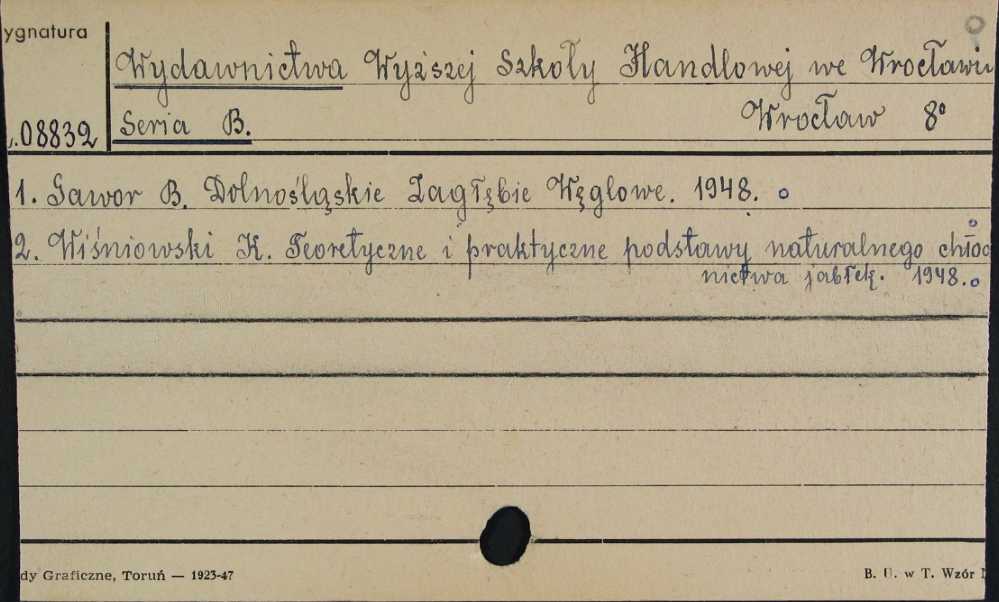 ygnatura
Wydawnictwa Wyższej Szkoły Handlowej we Wrocławiu
.08832 Seria B. Wrocław 8°
1. Gawor B. Dolnośląskie Zagłębie Węglowe. 1948.
2. Wiśniowski K. Teoretyczne i praktyczne podstawy naturalnego chłod
nictwa jabłek. 1948.
dy Graficzne, Toruń — 1923-47 B. U. w T. Wzór